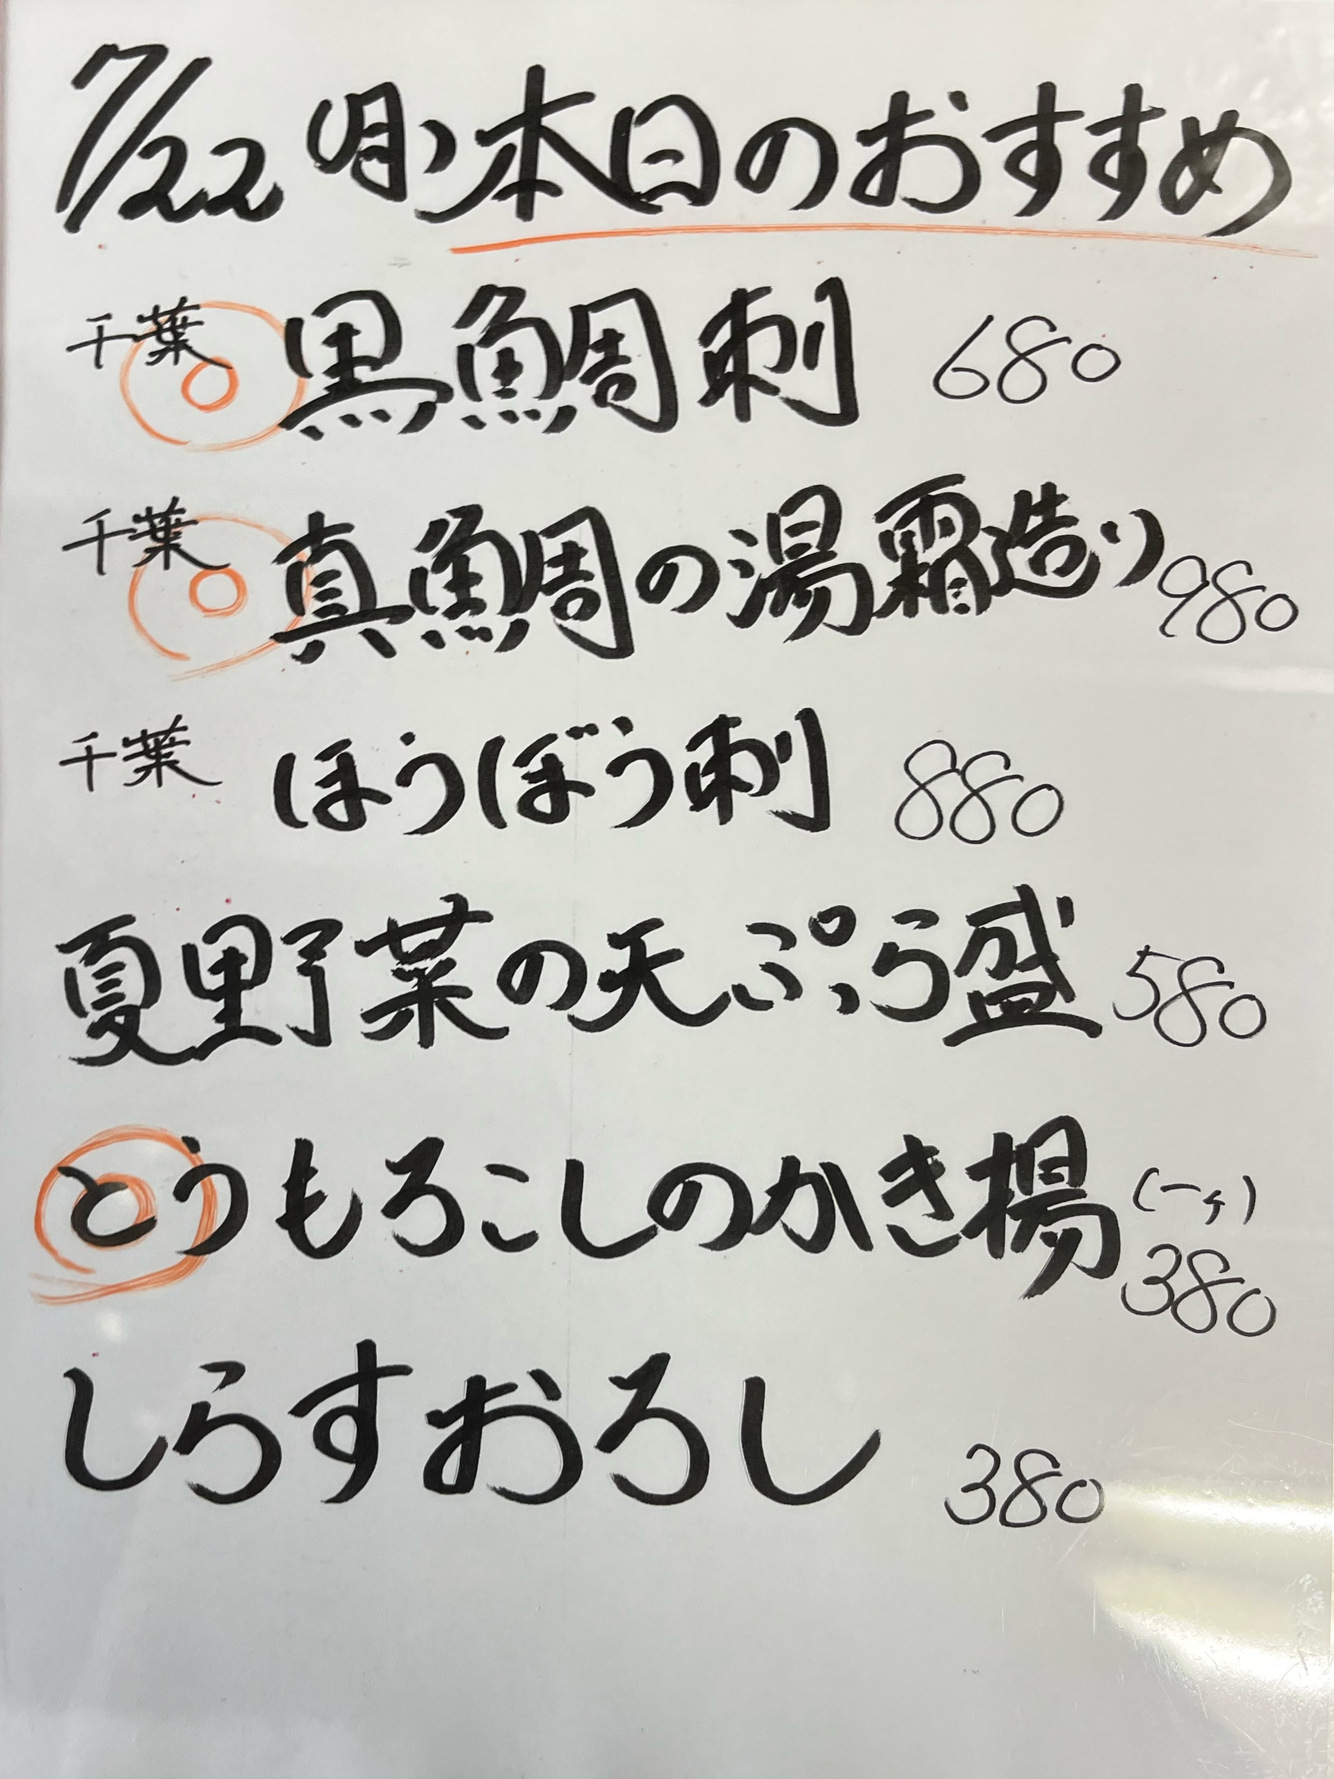 7/22(月)本日のおすすめ
千葉 黒鯛刺 680
千葉 真鯛の湯霜造り 980
千葉 ほうぼう刺 880
夏野菜の天ぷら盛 580
とうもろこしのかき揚 (一ケ) 380
しらすおろし 380